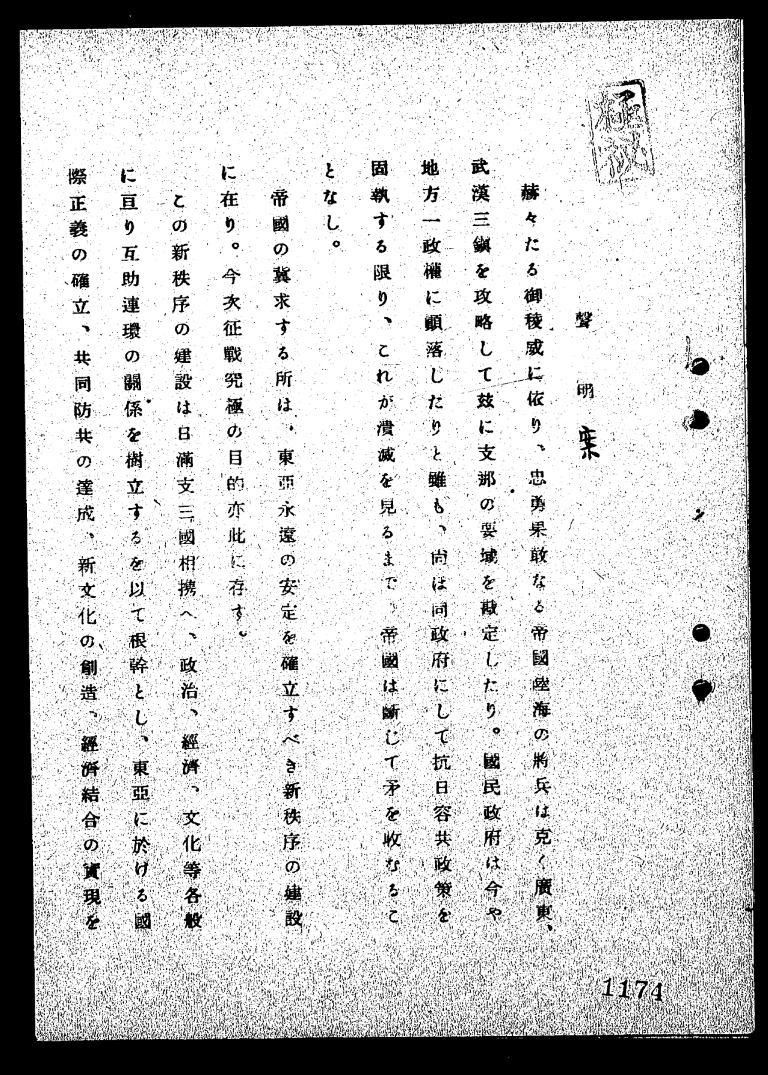 極祕
聲明案
赫々たる御稜威に依り、忠勇果敢なる帝國陸海の將兵は克く廣東、
武漢三鎭を攻略して玆に支那の要域を戡定したり。國民政府は今や
地方一政權に顚落したりと雖も、尙ほ同政府にして抗日容共政策を
固執する限り、これが潰滅を見るまで、帝國は斷じて矛を收むるこ
となし。
帝國の冀求する所は、東亞永遠の安定を確立すべき新秩序の建設
に在り。今次征戰究極の目的亦此に存す。
この新秩序の建設は日滿支三國相携へ、政治、經濟、文化等各般
に亘り互助連環の關係を樹立するを以て根幹とし、東亞に於ける國
際正義の確立、共同防共の達成、新文化の創造、經濟結合の實現を
1174